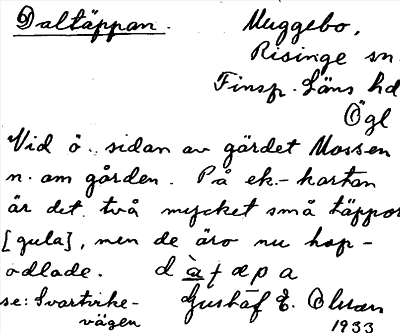 Daltäppan. Muggebo,
Risinge sn.
Finsp. Läns hd
Ögl
Vid ö. sidan av gärdet Mossen
n. om gården. På ek.-kartan
är det två mycket små täppor
[gula], men de äro nu hop-
odlade. d
se: Svartvike-
vägen
Gustaf E. Olsson
1933